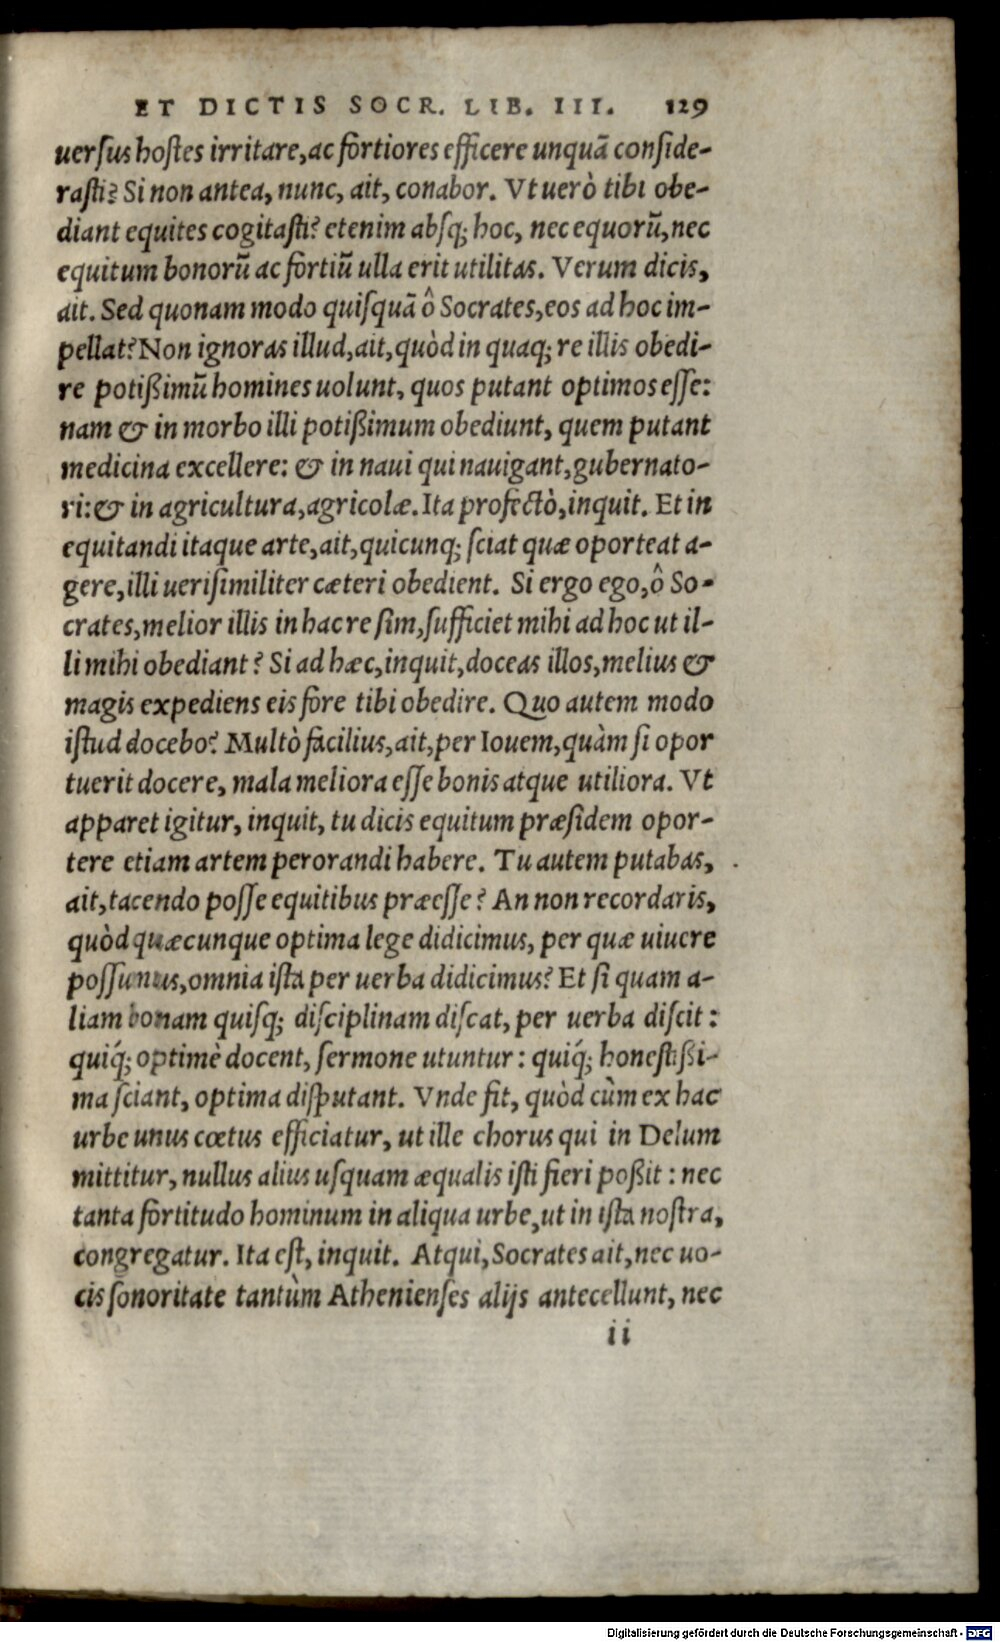 ET DICTIS SOCR. LIB. III. 129
uersus hostes irritare, ac fortiores efficere unquā conside-
rasti? Si non antea, nunc, ait, conabor. Vt uerò tibi obe-
diant equites cogitasti? etenim absq; hoc, nec equorū, nec
equitum bonorū ac fortiū ulla erit utilitas. Verum dicis,
ait. Sed quonam modo quisquā ô Socrates, eos ad hoc im-
pellat? Non ignoras illud, ait, quòd in quaq; re illis obedi-
re potißimū homines uolunt, quos putant optimos esse:
nam & in morbo illi potißimum obediunt, quem putant
medicina excellere: & in naui qui nauigant, gubernato-
ri: & in agricultura, agricolæ. Ita profectò, inquit. Et in
equitandi itaque arte, ait, quicunq; sciat quæ oporteat a-
gere, illi uerisimiliter cæteri obedient. Si ergo ego, ô So-
crates, melior illis in hac re sim, sufficiet mihi ad hoc ut il-
li mihi obediant? Si ad hæc, inquit, doceas illos, melius &
magis expediens eis fore tibi obedire. Quo autem modo
istud docebo? Multò facilius, ait, per Iouem, quàm si opor
tuerit docere, mala meliora esse bonis atque utiliora. Vt
apparet igitur, inquit, tu dicis equitum præsidem opor-
tere etiam artem perorandi habere. Tu autem putabas,
ait, tacendo posse equitibus præesse? An non recordaris,
quòd quæcunque optima lege didicimus, per quæ uiuere
possumus, omnia ista per uerba didicimus? Et si quam a-
liam bonam quisq; disciplinam discat, per uerba discit:
quiq́; optimè docent, sermone utuntur: quiq́; honestißi-
ma sciant, optima disputant. Vnde fit, quòd cùm ex hac
urbe unus cœtus efficiatur, ut ille chorus qui in Delum
mittitur, nullus alius usquam æqualis isti fieri poßit: nec
tanta fortitudo hominum in aliqua urbe, ut in ista nostra,
congregatur. Ita est, inquit. Atqui, Socrates ait, nec uo-
cis sonoritate tantùm Athenienses alijs antecellunt, nec
ii
Digitalisierung gefördert durch die Deutsche Forschungsgemeinschaft - DFG